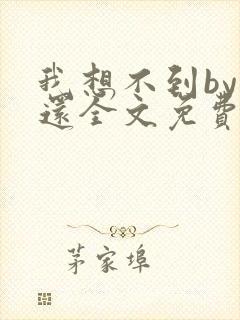 我想不到by
還全文免費
茅家埠